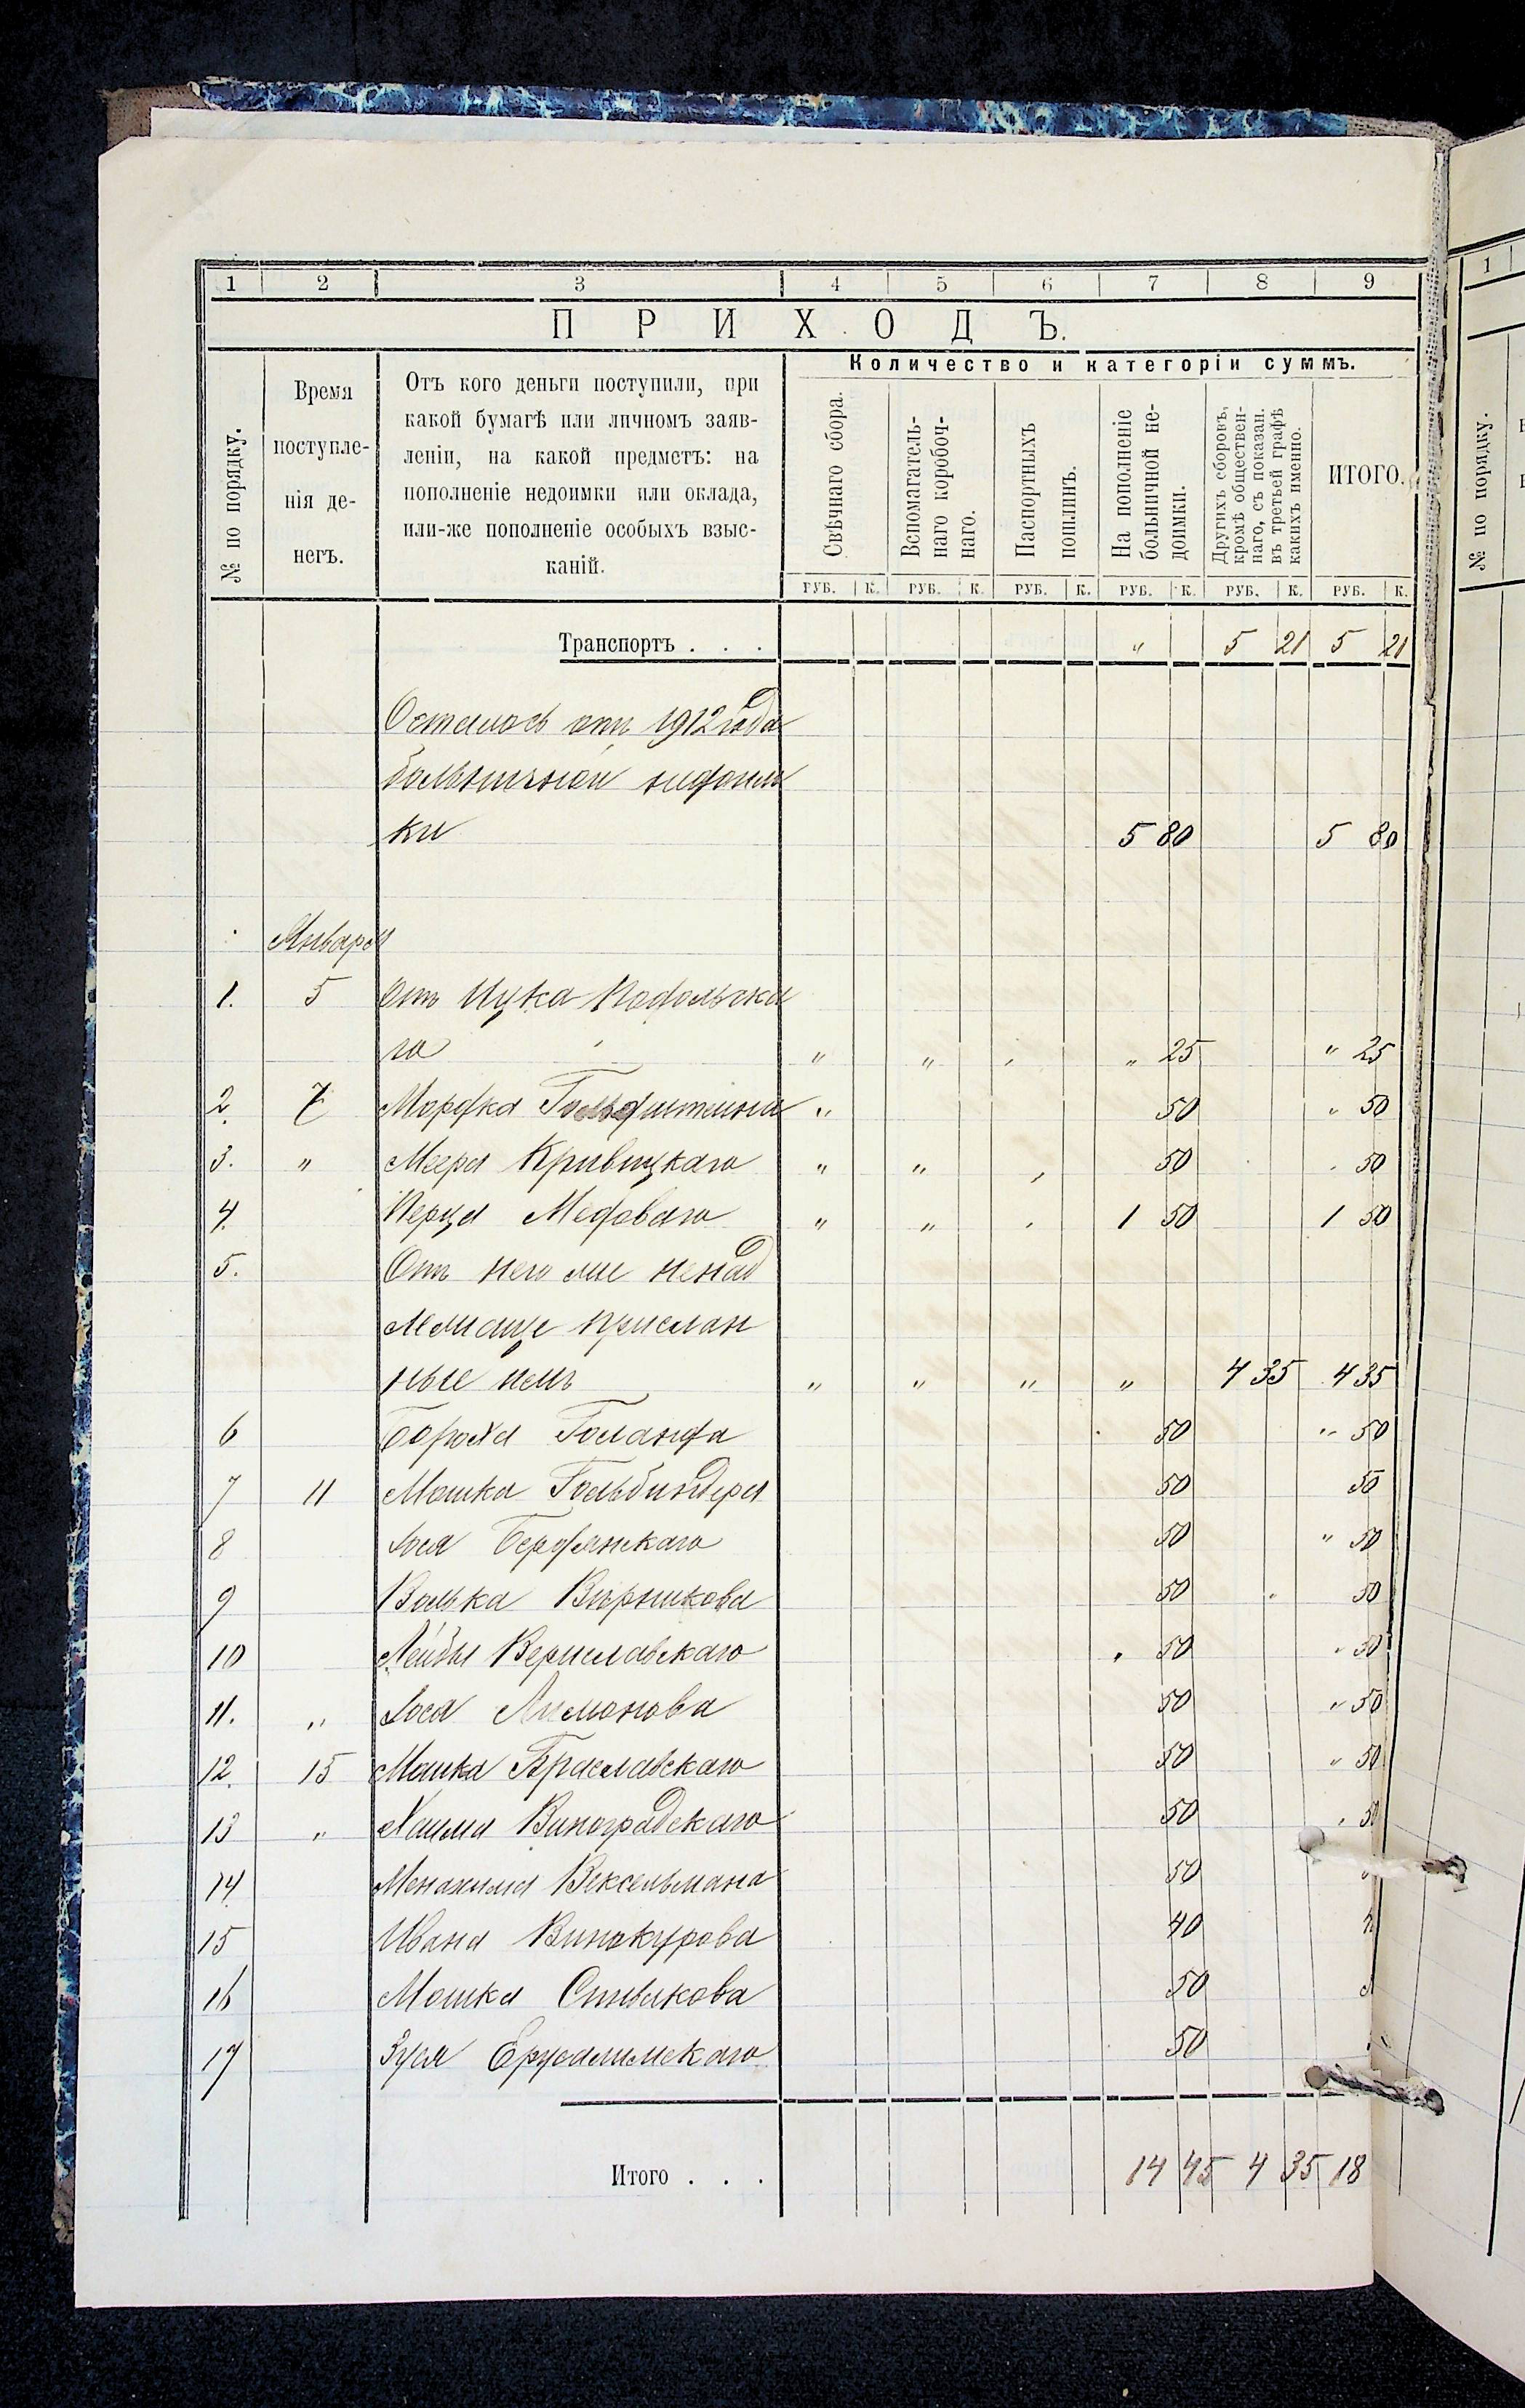 1 2 3 4 5 6 7 8 9
ПРИХОДЪ.
№ по порядку.
Время
поступле-
нія де-
негъ.
Отъ кого деньги поступили, при
какой бумагѣ или личномъ заяв-
леніи, на какой предметъ: на
пополненіе недоимки или оклада,
или-же пополненіе особыхъ взыс-
каній.
Количество и категоріи суммъ.
Свѣчнаго сбора.
Вспомагатель-
наго коробоч-
наго.
Паспортныхъ
пошлинъ.
На пополненіе
больничной не-
доимки.
Другихъ сборовъ,
кромѣ обществен-
наго, съ показан.
въ третьей графѣ
какихъ именно.
ИТОГО.
РУБ. К. РУБ. К. РУБ. К. РУБ. К. РУБ. К. РУБ. К.
Транспортъ . . . " 5 21 5 21
Осталось отъ 1912 года
больничной недоим
ки 5 80 5 80
Января
1. 5 Отъ Ицка Подольска
го " " " " 25 " 25
2. 7 Мордка Гольдштейна " 50 " 50
3. " Меера Кривицкаго " " " 50 " 50
4. Перца Медоваго " " " 1 50 1 50
5. Отъ него
прислан
ные имъ " " " " 4 35 4 35
6 Бороха Голанда 50 " 50
7 11 Мошка Гольбиндера 50 50
8 Іося Бердянскаго 50 " 50
9 Волька Вѣрникова 50 50
10 Лейбы Бериславскаго 50 " 50
11. " Іося Лимонова 50 " 50
12. 15 Мошка Браславскаго 50 " 50
13 " Хаима Виноградскаго 50 " 50
14 Менахима Вексельмана 50
15 Ивана Винокурова 40
16 Мошка Спивакова 50
17 Зуся Ерусалимскаго 50
Итого . . . 14 45 4 35 18
1
№ по порядку.